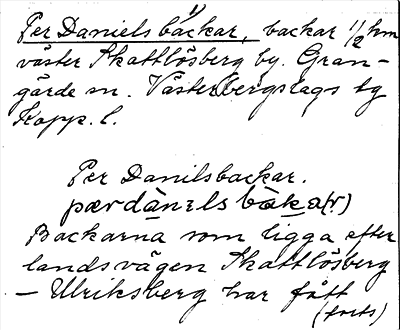 Per Daniels backar, backar 1/2 km
väster Skattlösberg by. Gran-
gärde sn. Västerbergslags tg
Kopp. l.
Per Danilsbackar.
pærdànɪlsbàka(r)
Backarna som ligga efter
landsvägen Skattlösberg
– Ulriksberg har fått
(forts)